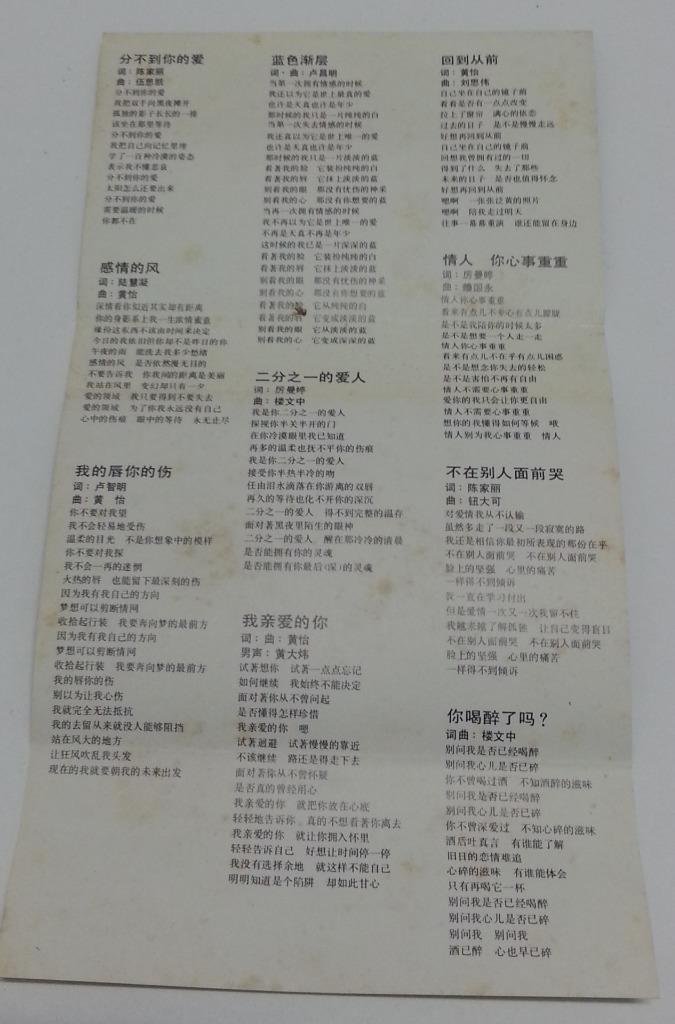 分不到你的爱
词：陈家丽
曲：伍思凯
分不到你的爱
我把双手向黑夜摊开
孤独的影子长长的一排
该坐在那里等待
分不到你的爱
我把自己向记忆里埋
学了一百种冷漠的姿态
表示我不懂悲哀
分不到你的爱
太阳怎么还要出来
分不到你的爱
需要温暖的时候
你都不在
感情的风
词：陆慧凝
曲：黄怡
深情看你似近其实却有距离
你的身影系上我一生浓情蜜意
缘份这东西不该由时间来决定
今日的我依旧但你却不是昨日的你
午夜的雨　能洗去我多少愁绪
感情的风　是否依然漫无目的
不要告诉我　你我间的距离是美丽
我站在风里　变幻却只有一夕
爱的领域　我只要得到不要失去
爱的领域　为了你我永远没有自己
心中的伤痕　眼中的等待　永无止尽
我的唇你的伤
词：卢智明
曲：黄　怡
你不要对我望
我不会轻易地受伤
温柔的目光　不是你想象中的模样
你不要对我探
我不会一再的迷惘
火热的唇　也能留下最深刻的伤
因为我有我自己的方向
梦想可以剪断情网
收拾起行装　我要奔向梦的最前方
因为我有我自己的方向
梦想可以剪断情网
收拾起行装　我要奔向梦的最前方
我的唇你的伤
别以为让我心伤
我就完全无法抵抗
我的去留从来就没人能够阻挡
站在风大的地方
让狂风吹乱我头发
现在的我就要朝我的未来出发
蓝色渐层
词、曲：卢昌明
当第一次拥有情感的时候
我还以为它是世上最真的爱
也许是天真也许是年少
那时候的我只是一片纯纯的白
当第一次失去情感的时候
我还真以为它是世上唯一的爱
也许是天真也许是年少
那时候的我只是一片淡淡的蓝
看著我的脸　它装扮纯纯的白
看著我的唇　它抹上淡淡的蓝
别看我的眼　那没有忧伤的神采
别看我的心　那没有你想要的蓝
当再一次拥有情感的时候
我不再以为它是世上唯一的爱
不再是天真不再是年少
这时候的我已是一片深深的蓝
看著我的脸　它装扮纯纯的白
看著我的唇　它抹上淡淡的蓝
别看我的眼　那没有忧伤的神采
别看我的心　那没有你想要的蓝
看著我的脸　它从纯纯的白
看著我的唇　它变成淡淡的蓝
别看我的眼　它从淡淡的蓝
别看我的心　它变成深深的蓝
二分之一的爱人
词：厉曼婷
曲：楼文中
我是你二分之一的爱人
探视你半关半开的门
在你冷漠眼里我已知道
再多的温柔也抚不平你的伤痕
我是你二分之一的爱人
接受你半热半冷的吻
任由泪水滴落在你游离的双唇
再久的等待也化不开你的深沉
二分之一的爱人　得不到完整的温存
面对著黑夜里陌生的眼神
二分之一的爱人　醒在那冷冷的清晨
是否能拥有你的灵魂
是否能拥有你最后(深)的灵魂
我亲爱的你
词：曲：黄怡
男声：黄大炜
试著想你　试著一点点忘记
如何继续　我始终不能决定
面对著你从不曾问起
是否懂得怎样珍惜
我亲爱的你　嗯
试著迴避　试著慢慢的靠近
不该继续　路还是得走下去
面对著你从不曾怀疑
是否真的曾经用心
我亲爱的你　就把你放在心底
轻轻地告诉你　真的不想看著你离去
我亲爱的你　就让你拥入怀里
轻轻告诉自己　好想让时间停一停
我没有选择余地　就这样不能自己
明明知道是个陷阱　却如此甘心
回到从前
词：黄怡
曲：刘思伟
自己坐在自己的镜子前
看看是否有一点点改变
拉上了窗帘　满心的依恋
过去的日子　是不是慢慢走远
好想再回到从前
自己坐在自己的镜子前
回想我曾拥有过的一切
得到了什么　失去了那些
未来的日子　是否也值得怀念
好想再回到从前
嗯啊　一张张泛黄的照片
嗯啊　陪我走过明天
往事一幕幕重演　谁还能留在身边
情人　你心事重重
词：厉曼婷
曲：鲍国永
情人你心事重重
看来有点儿不专心有点儿朦胧
是不是我陪你的时候太多
是不是想要一个人走一走
情人你心事重重
看来有点儿不在乎有点儿困惑
是不是想念你失去的轻松
是不是害怕不再有自由
情人不需要心事重重
爱你的我只会让你更自由
情人不需要心事重重
想你的我懂得如何等候　哦
情人别为我心事重重　情人
不在别人面前哭
词：陈家丽
曲：钮大可
对爱情我从不认输
虽然多走了一段又一段寂寞的路
我还是相信你最初所表现的那份在乎
不在别人面前哭　不在别人面前哭
脸上的坚强　心里的痛苦
一样得不到倾诉
我一直在学习付出
但是爱情一次又一次我留不住
我越来越了解孤独　让自己变得盲目
不在别人面前哭　不在别人面前哭
脸上的坚强　心里的痛苦
一样得不到倾诉
你喝醉了吗？
词曲：楼文中
别问我是否已经喝醉
别问我心儿是否已碎
你不曾喝过酒　不知酒醉的滋味
别问我是否已经喝醉
别问我心儿是否已碎
你不曾深爱过　不知心碎的滋味
酒后吐真言　有谁能了解
旧日的恋情难追
心碎的滋味　有谁能体会
只有再喝它一杯
别问我是否已经喝醉
别问我心儿是否已碎
别问我　别问我
酒已醉　心也早已碎